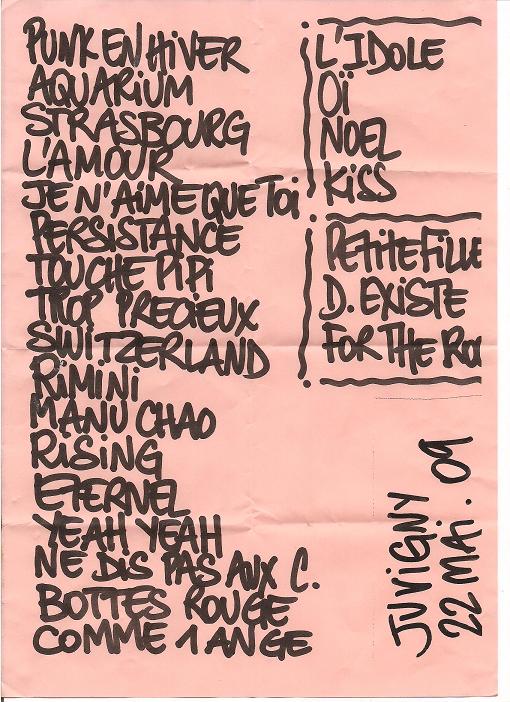 PUNK EN HIVER
AQUARIUM
STRASBOURG
L'AMOUR
JE N'AIME QUE TOI
PERSISTANCE
TOUCHE PIPI
TROP PRECIEUX
SWITZERLAND
RIMINI
MANU CHAO
RISING
ETERNEL
YEAH YEAH
NE DIS PAS AUX C.
BOTTES ROUGE
COMME 1 ANGE
L'IDOLE
OÏ
NOEL
KISS
PETITE FILLE
D. EXISTE
FOR THE
JUVIGNY
22 MAI. 09